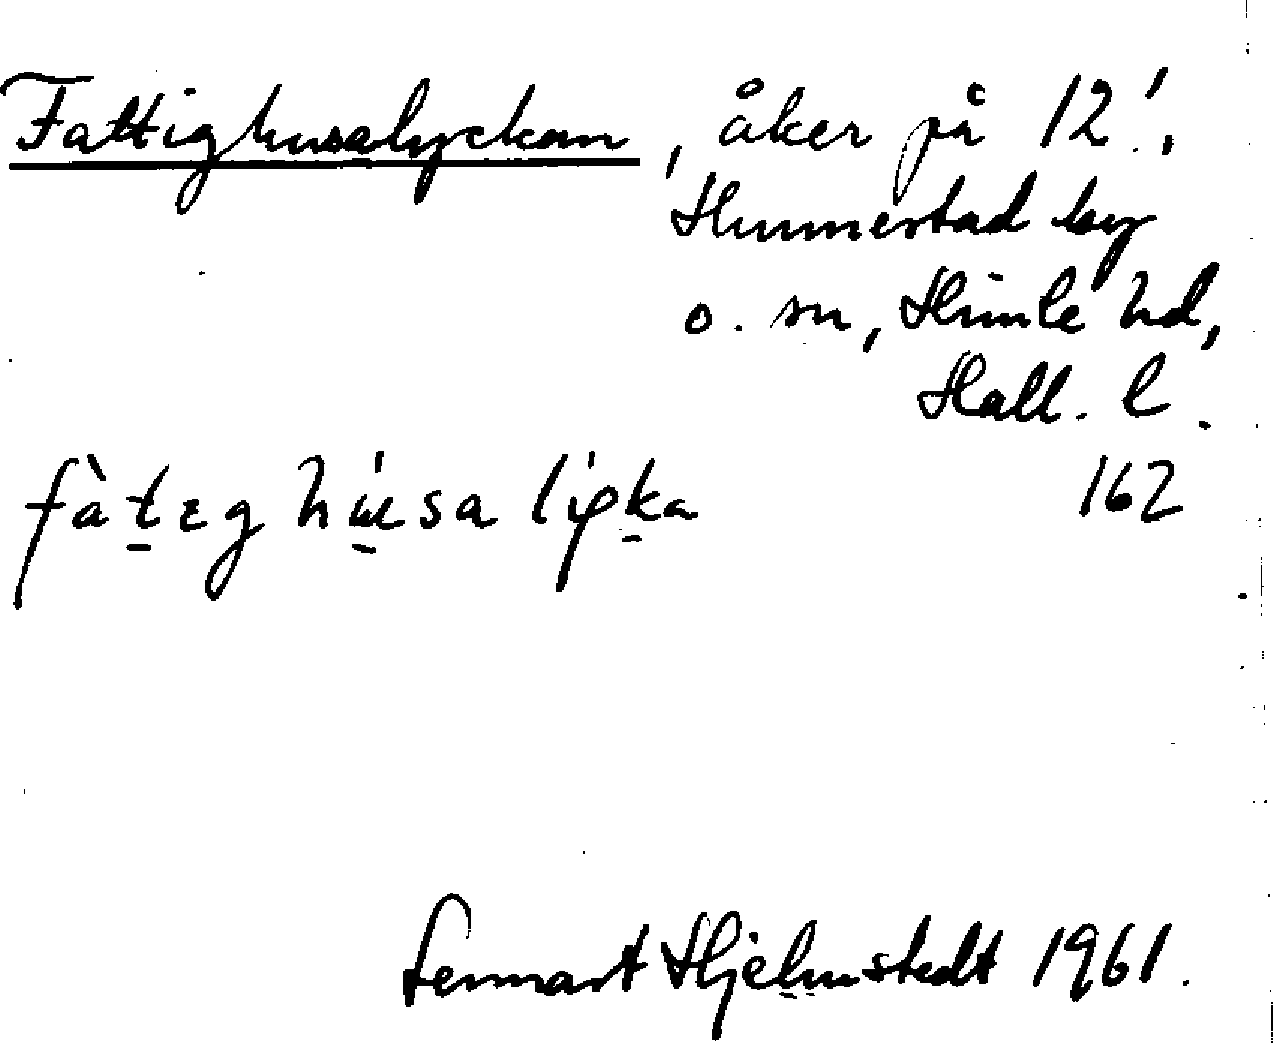 Fattighusalyckan, åker på 12!,
Hunnestad by
o. sn, Himle hd,
Hall. l.
162
fàteghúsalyka
Lennart Hjelmstedt 1961.